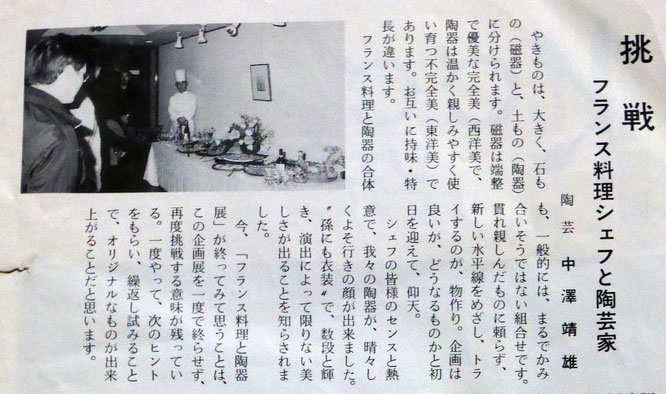 挑戦
フランス料理シェフと陶芸家
陶芸　中澤靖雄
やきものは、大きく、石も
の（磁器）と、土もの（陶器）
に分けられます。磁器は端整
で優美な完全美（西洋美）で、
陶器は温かく親しみやすく使
い育つ不完全美（東洋美）で
あります。お互いに持味・特
長が違います。
フランス料理と陶器の合体
も、一般的には、まるでかみ
合いそうではない組合せです。
貫れ親しんだものに頼らず、
新しい水平線をめざし、トラ
イするのが、物作り。企画は
良いが、どうなるものかと初
日を迎えて、仰天。
シェフの皆様のセンスと熱
意で、我々の陶器が、晴々し
くよそ行きの顔が出来ました。
〝孫にも衣装〟で、数段と輝
き、演出によって限りない美
しさが出ることを知らされま
した。
今、「フランス料理と陶器
展」が終ってみて思うことは、
この企画展を一度で終らせず、
再度挑戦する意味が残ってい
る。一度やって、次のヒント
をもらい、繰返し試みること
で、オリジナルなものが出来
上がることだと思います。